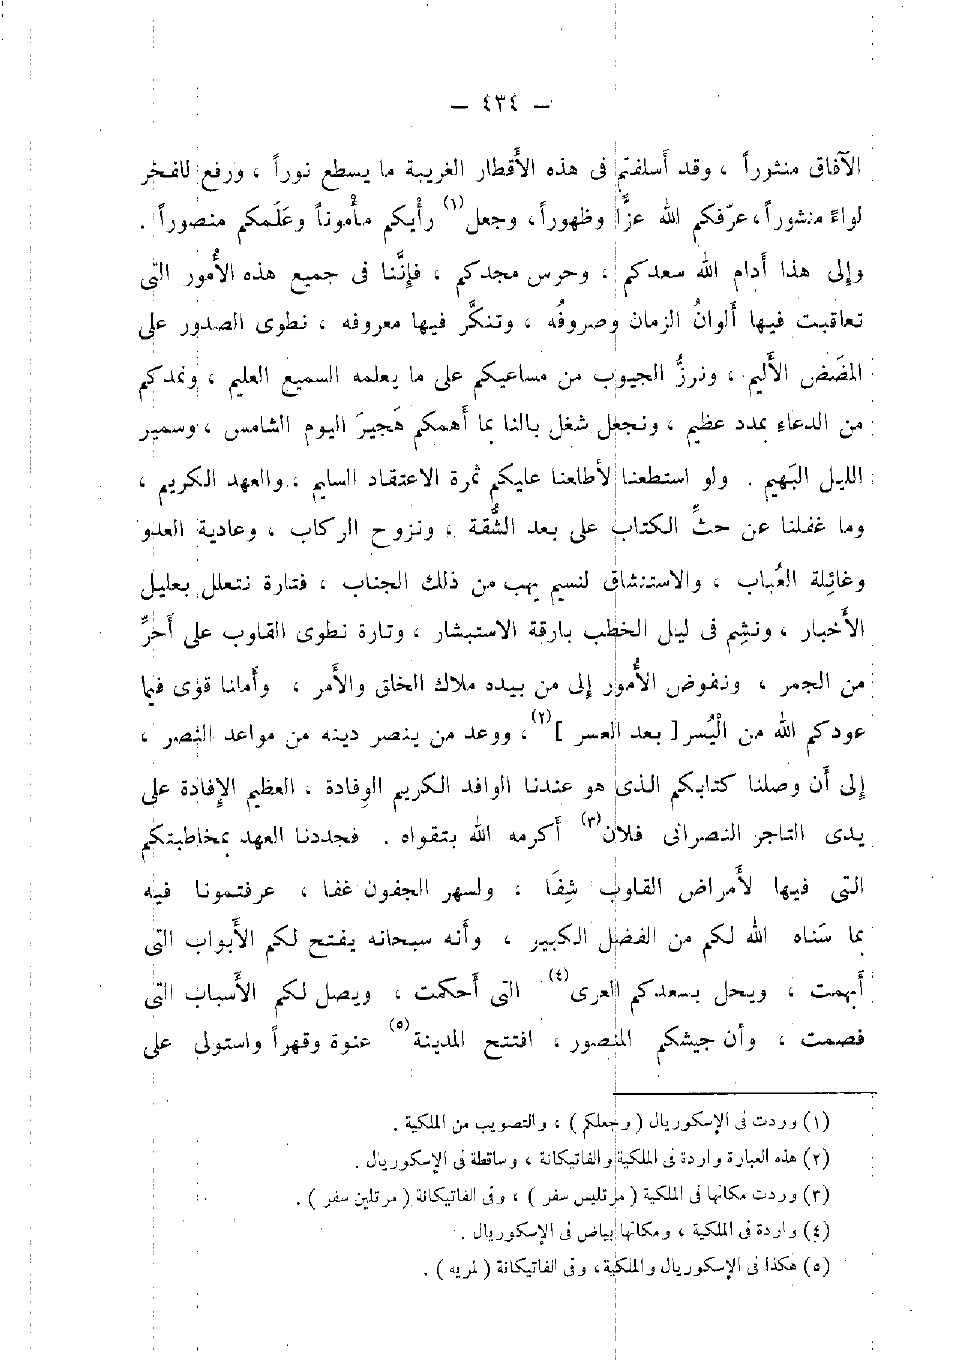 — ٤٣٤ —
الآفاق منثوراً ، وقد أسلفتم فى هذه الأقطار الغريبة ما يسطع نوراً ، ورفع للفخر
لواءً منشوراً، عرّفكم الله عزًّا وظهوراً، وجعل(١) رأيكم مأموناً وعَلَمكم منصوراً .
وإلى هذا أدام الله سعدكم ، وحرس مجدكم ، فإنَّنا فى جميع هذه الأمُور التى
تعاقبت فيها ألوانُ الزمان وصروفُه ، وتنكَّر فيها معروفه ، نطوى الصدور على
المَضَض الأليم ، ونرزُّ الجيوب من مساعيكم على ما يعلمه السميع العليم ، ونمدكم
من الدعاءِ بمدد عظيم ، ونجعل شغل بالنا بما أهمكم هَجيرَ اليوم الشامس ، وسمير
الليل البَهيم . ولو استطعنا لأطلعنا عليكم ثمرة الاعتقاد السليم ، والعهد الكريم ،
وما غفلنا عن حثِّ الكتاب على بعد الشُّقة ، ونزوح الركاب ، وعادية العدو
وغائِلة العُباب ، والاستنشاق لنسيم يهب من ذلك الجناب ، فتارة نتعلل بعليل
الأخبار ، ونشِم فى ليل الخطب بارقة الاستبشار ، وتارة نطوى القلوب على أحَرِّ
من الجمر ، ونفوض الأمُور إلى من بيده ملاك الخلق والأمر ، وأملنا قوى فيما
عودكم الله من الْيُسر [ بعد العسر ](٢)، ووعد من ينصر دينه من مواعد النصر ،
إلى أن وصلنا كتابكم الذى هو عندنا الوافد الكريم الوِفادة ، العظيم الإفادة على
يدى التاجر النصرانى فلان(٣) أكرمه الله بتقواه . فجددنا العهد بمخاطبتكم
التى فيها لأمراض القلوب شِفَا ، ولسهر الجفون غفا ، عرفتمونا فيه
بما سَناه الله لكم من الفضل الكبير ، وأنه سبحانه يفتح لكم الأبواب التى
أبهمت ، ويحل بسعدكم العرى(٤) التى أحكمت ، ويصل لكم الأسباب التى
فصمت ، وأن جيشكم المنصور ، افتتح المدينة(٥) عنوة وقهراً واستولى على
(١) وردت فى الإسكوريال (وجعلكم) ، والتصويب من الملكية .
(٢) هذه العبارة واردة فى الملكية والفاتيكانة ، وساقطة فى الإسكوريال .
(٣) وردت مكانها فى الملكية ( مرتليس سفر ) ، وفى الفاتيكانة ( مرتلين سفر ) .
(٤) واردة فى الملكية ، ومكانها بياض فى الإسكوريال .
(٥) هكذا فى الإسكوريال والملكية، وفى الفاتيكانة ( لمريه ) .